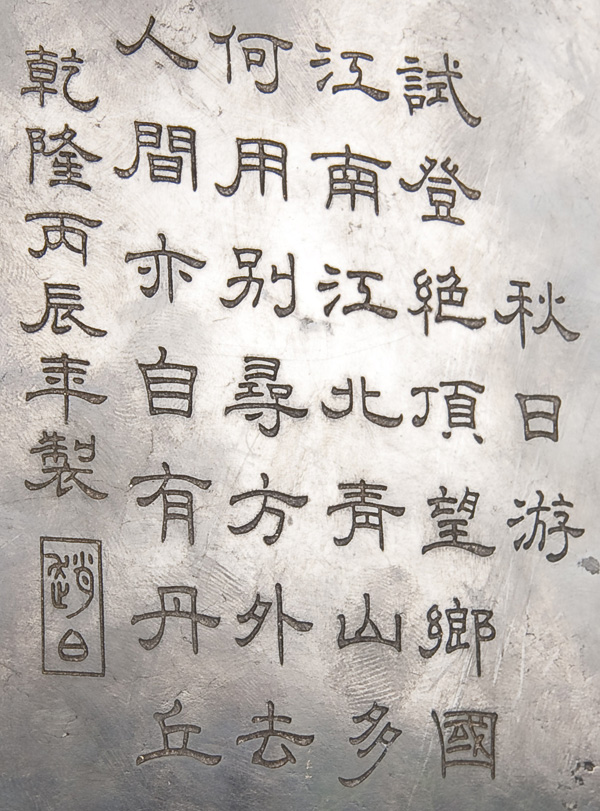 秋日游
試登絕頂望鄉國
江南江北青山多
何用别尋方外去
人間亦自有丹丘
乾隆丙辰年製
趙